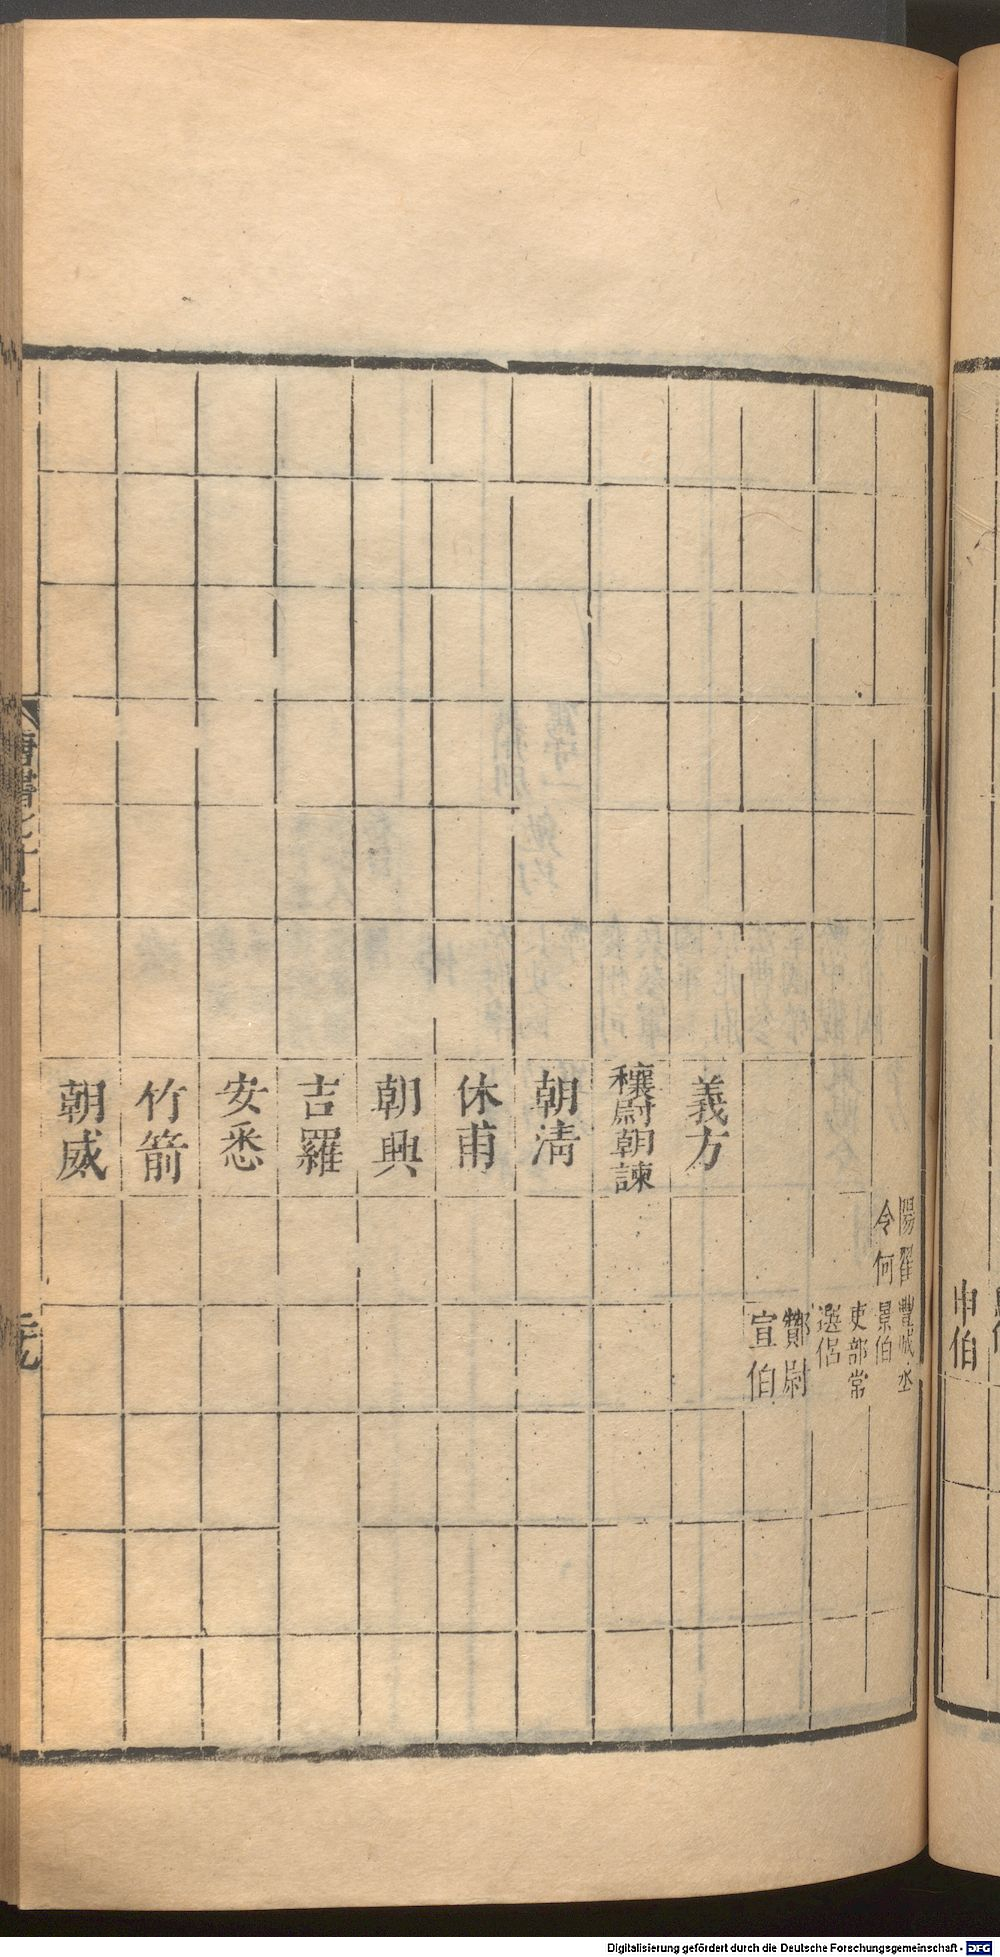 陽翟豐城丞
令何景伯
吏部常
選侶
酇尉
宣伯
義方
穰尉朝諫
朝清
休甫
朝興
吉羅
安悉
竹箭
朝威
申伯
Digitalisierung gefördert durch die Deutsche Forschungsgemeinschaft - DFG